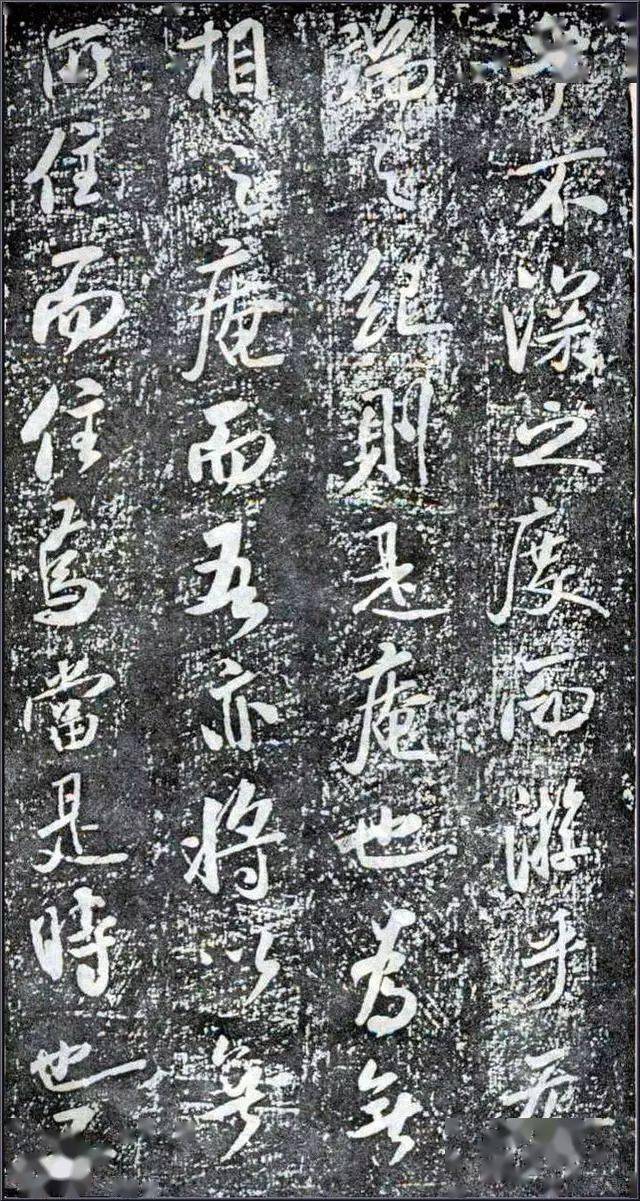 乎不深之度而游乎无
端之紀則是庵也為無
相之庵而吾亦將以無
所住而住焉當是時也